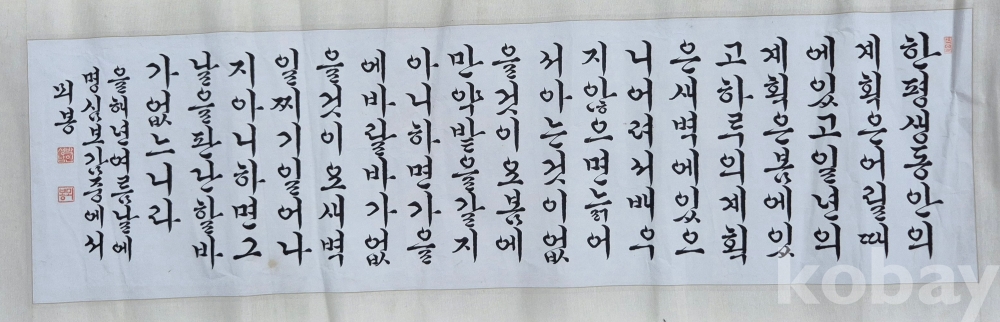 한평생동안의
계획은어릴때
에있고일년의
계획은봄에있
고하루의계획
은새벽에있으
니어려서배우
지않으면늙어
서아는것이없
을것이오봄에
만약밭을갈지
아니하면가을
에바랄바가없
을것이오새벽
일찌기일어나
지아니하면그
날을판단할바
가없느니라
을해년여름날에
명심보감중에서
kobay